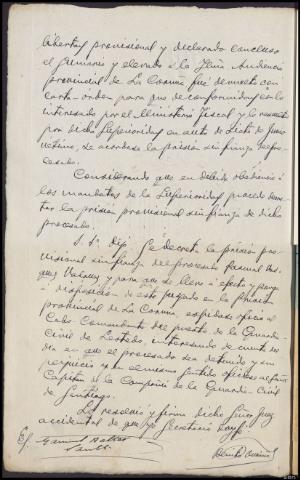 libertad provisional y declarado concluso
el sumario y elevado a la Ilma Audiencia
provincial de La Coruña fué devuelto con
carta-orden para que de conformidad con lo
interesado por el Ministerio fiscal y lo resuelto
por dicha Superioridad en auto de siete de
se acordase la prisión sin fianza del pro-
cesado.
Considerando que en debida obediencia a
los mandatos de la Superioridad procede decre-
tar la prisión provisional sin fianza de dicho
procesado.
S. Sª. Dijo: Se decreta la prisión pro-
visional sin fianza del procesado Pascual
y para que se lleve a efecto y ponga
a disposición de este Juzgado en la prisión
provincial de La Coruña, expídase oficio al
Cabo Comandante del puesto de la Guardia
Civil de interesando de cuenta del
día en que el procesado sea detenido y sin
perjuicio y en el mismo sentido ofíciese al Señor
Capitán de la Compañía de la Guardia Civil
de Santiago.
Lo resolvió y firma dicho Señor Juez
accidental de que yo Secretario doy fé.